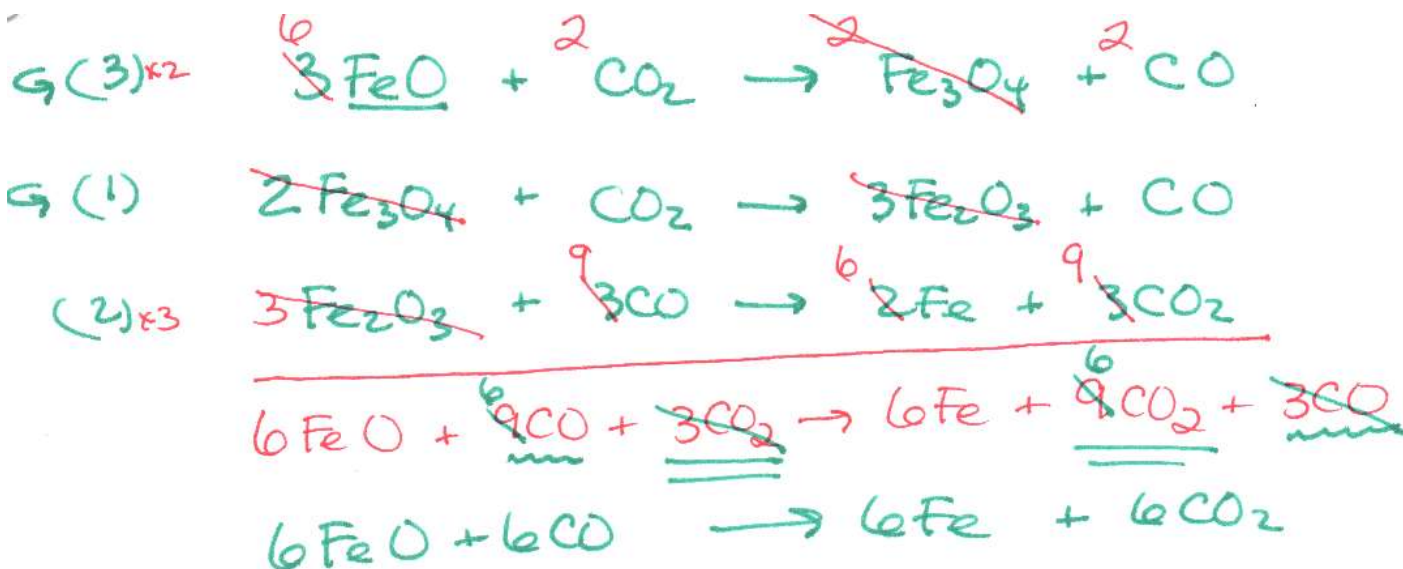 ↪(3)×2 6 3FeO + 2 CO₂ → 2 Fe₃O₄ + 2 CO
↪(1) 2Fe₃O₄ + CO₂ → 3Fe₂O₃ + CO
(2)×3 3Fe₂O₃ + 9 3CO → 6 2Fe + 9 3CO₂
6FeO + 6 9CO + 3CO₂ → 6Fe + 6 9CO₂ + 3CO
6FeO + 6CO → 6Fe + 6CO₂